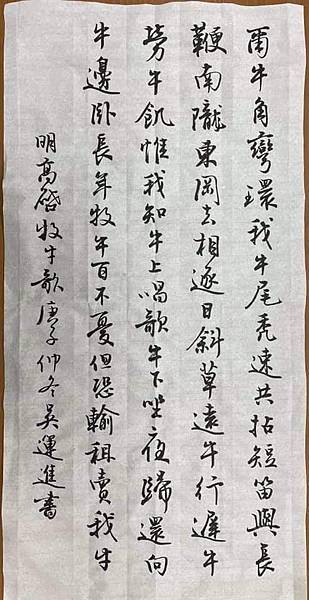 爾牛角彎環我牛尾禿速共拈短笛與長
鞭南隴東岡去相逐日斜草遠牛行遲牛
勞牛飢惟我知牛上唱歌牛下坐夜歸還向
牛邊臥長年牧牛百不憂但恐輸租賣我牛
明高啓牧牛歌庚子仲冬吳運進書